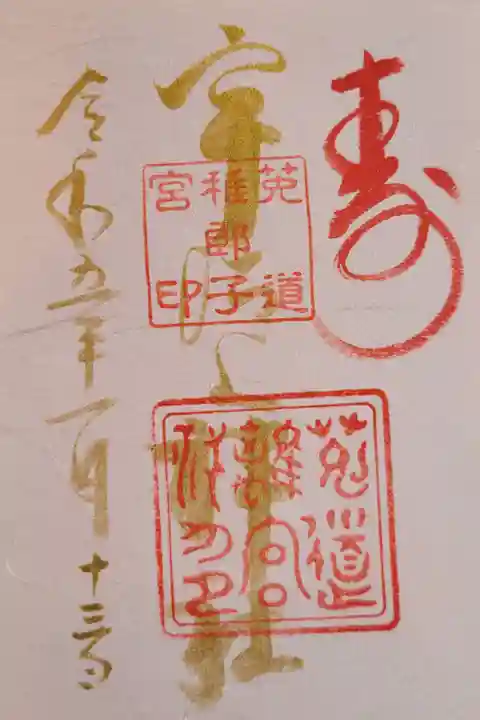 寿
宇治上神社
莵道
稚郎子
宮印
莵道
離宮
令和五年一月十三日